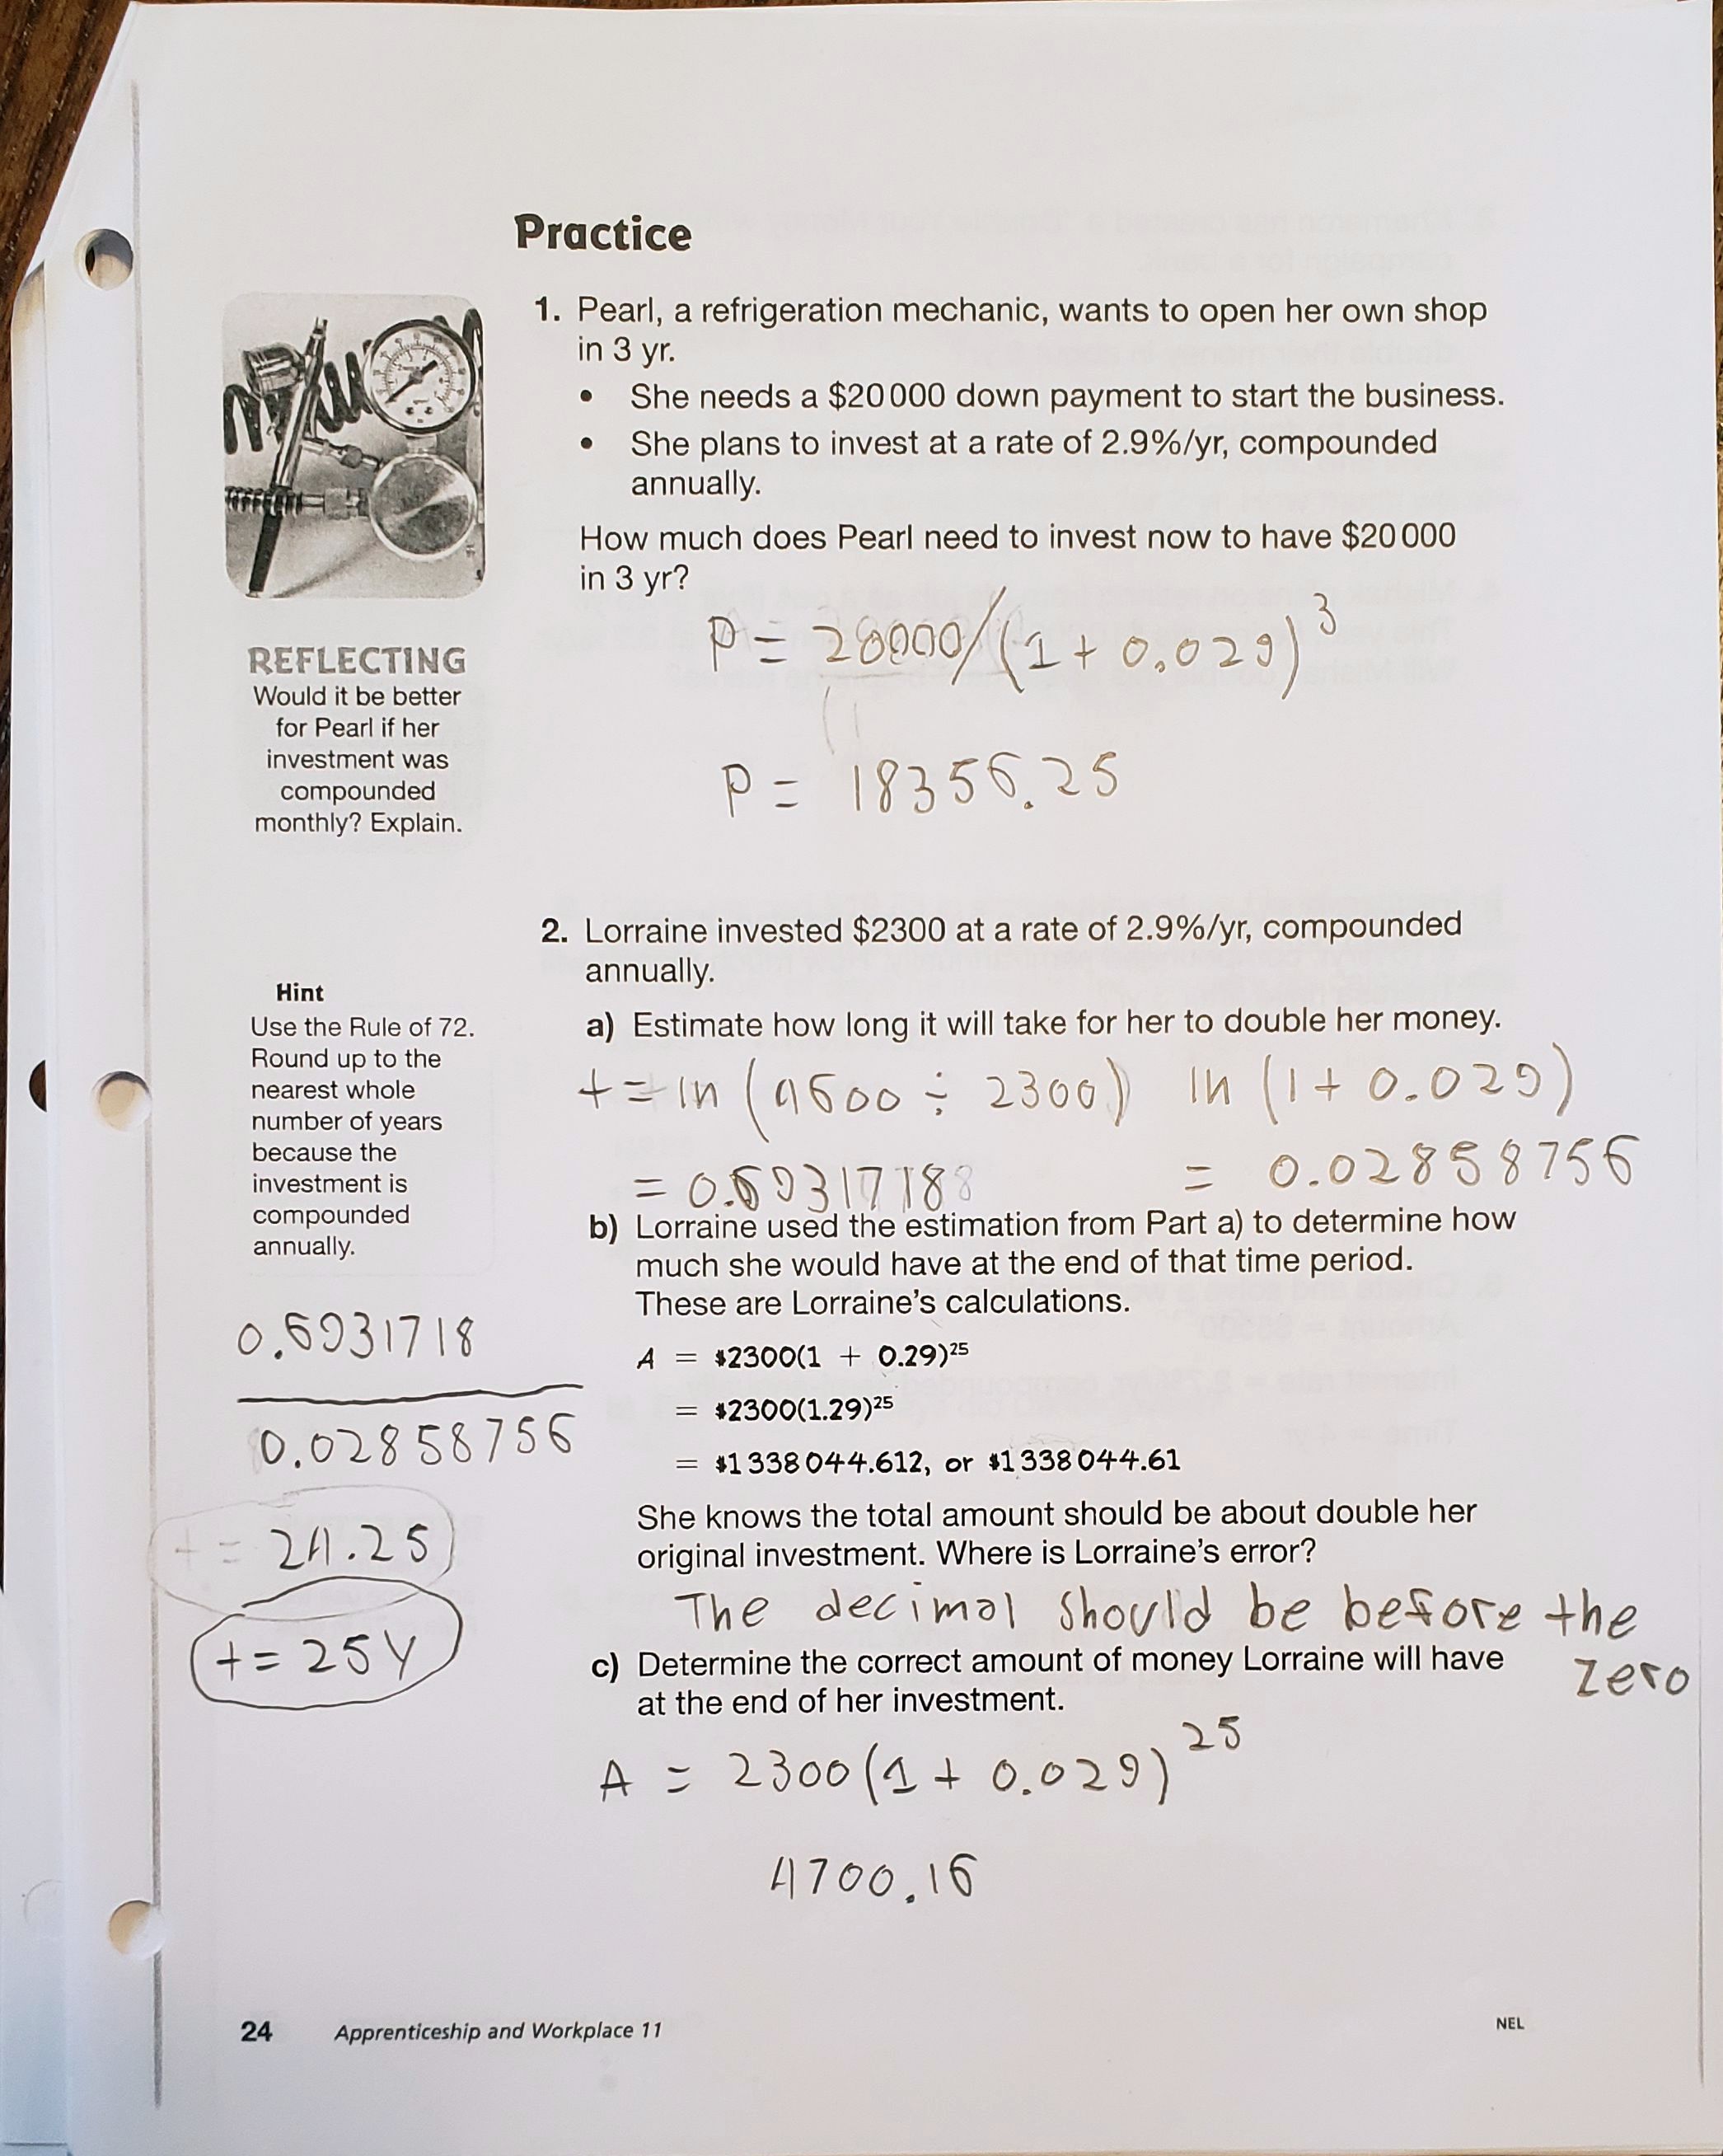 Practice
1. Pearl, a refrigeration mechanic, wants to open her own shop
in 3 yr.
• She needs a $20 000 down payment to start the business.
• She plans to invest at a rate of 2.9%/yr, compounded
annually.
How much does Pearl need to invest now to have $20 000
in 3 yr?
P = 20000/(1 + 0.029)³
P = 18356.25
REFLECTING
Would it be better
for Pearl if her
investment was
compounded
monthly? Explain.
2. Lorraine invested $2300 at a rate of 2.9%/yr, compounded
annually.
Hint
Use the Rule of 72.
Round up to the
nearest whole
number of years
because the
investment is
compounded
annually.
a) Estimate how long it will take for her to double her money.
t = ln (4600 ÷ 2300) ln (1 + 0.029)
= 0.69317188 = 0.02858756
0.6931718
0.02858756
t = 24.25
t = 25 Y
b) Lorraine used the estimation from Part a) to determine how
much she would have at the end of that time period.
These are Lorraine's calculations.
A = $2300(1 + 0.29)²⁵
= $2300(1.29)²⁵
= $1 338 044.612, or $1 338 044.61
She knows the total amount should be about double her
original investment. Where is Lorraine's error?
The decimal should be before the
zero
c) Determine the correct amount of money Lorraine will have
at the end of her investment.
A = 2300(1 + 0.029)²⁵
4700.16
24 Apprenticeship and Workplace 11
NEL